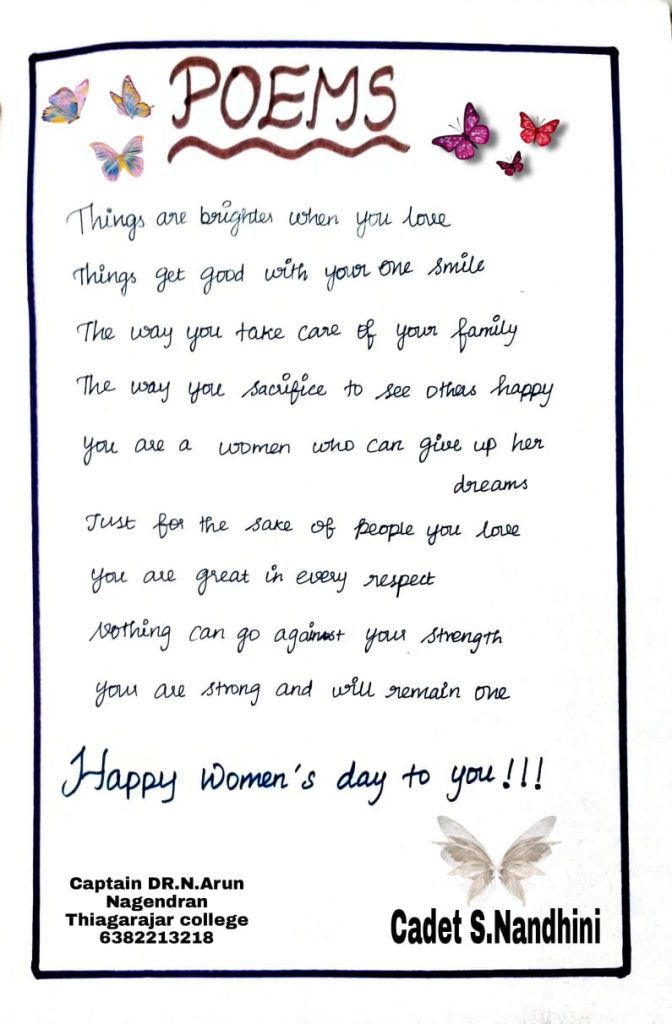 POEMS
Things are brighter when you love
Things get good with your one smile
The way you take care of your family
The way you sacrifice to see others happy
You are a women who can give up her
dreams
Just for the sake of people you love
You are great in every respect
Nothing can go against your strength
Your are strong and will remain one
Happy Women's day to you!!!
Captain DR.N.Arun
Nagendran
Thiagarajar college
6382213218
Cadet S.Nandhini